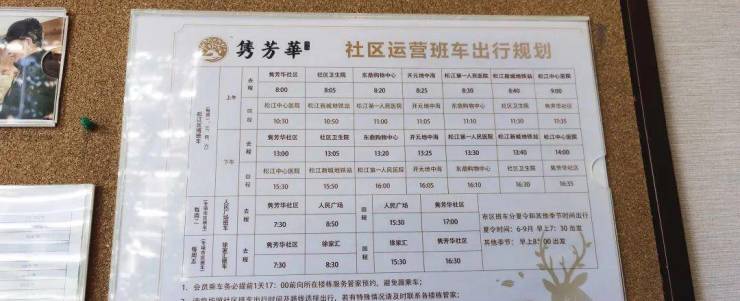 隽芳華 社区运营班车出行规划
上午 去程 隽芳华社区 社区卫生院 东鼎购物中心 开元地中海 松江第一人民医院 松江新城地铁站 松江中心医院
8:00 8:05 8:20 8:25 8:30 8:40 9:00
回程 松江中心医院 松江新城地铁站 松江第一人民医院 开元地中海 东鼎购物中心 社区卫生院 隽芳华社区
10:30 10:50 11:00 11:05 11:10 11:30 11:35
下午 去程 隽芳华社区 社区卫生院 东鼎购物中心 开元地中海 松江第一人民医院 松江新城地铁站 松江中心医院
13:00 13:05 13:20 13:25 13:30 13:40 14:00
回程 松江中心医院 松江新城地铁站 松江第一人民医院 开元地中海 东鼎购物中心 社区卫生院 隽芳华社区
15:30 15:50 16:00 16:05 16:10 16:30 16:35
每周二 人民广场班车 去程 隽芳华社区 人民广场 回程 人民广场 隽芳华社区
7:30 8:50 15:30 17:00
每周五 徐家汇班车 去程 隽芳华社区 徐家汇 回程 徐家汇 隽芳华社区
7:30 8:50 15:30 16:30
市区班车分夏令和其他季节时间出行
夏令时间：6-9月 早上7：30 出发
其他季节： 早上8：00 出发
1、会员乘车务必提前1天17：00前向所在楼栋服务管家预约，避免漏乘车；